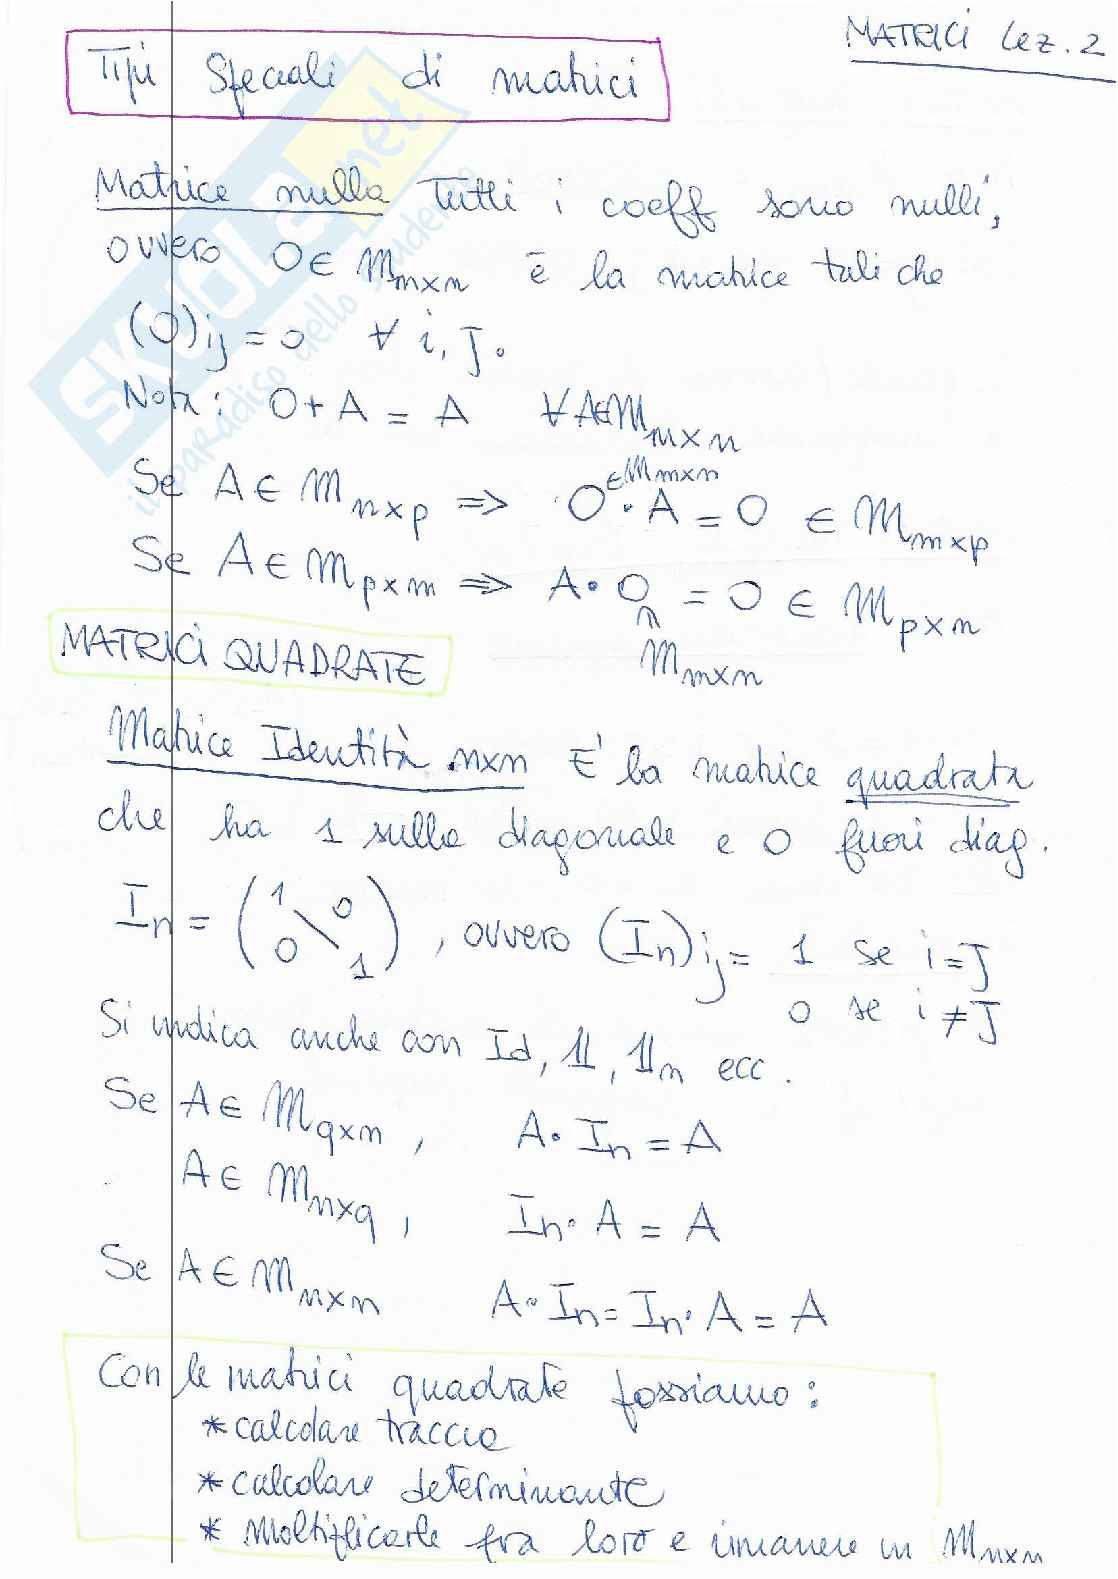 MATRICI Lez. 2
Tipi Speciali di matrici
Matrice nulla Tutti i coeff sono nulli,
ovvero O ∈ M m×n è la matrice tali che
(O)ij = 0 ∀ i, J.
Nota: O + A = A ∀ A∈M m×n
Se A ∈ M n×p ⇒ O ∈M m×n · A = O ∈ M m×p
Se A ∈ M p×m ⇒ A · O = O ∈ M p×n
∈ M m×n
MATRICI QUADRATE
Matrice Identità n×n E' la matrice quadrata
che ha 1 sulla diagonale e 0 fuori diag.
In = (1 0 0 1), ovvero (In)ij = 1 se i=J
0 se i≠J
Si indica anche con Id, 𝟙, 𝟙n ecc.
Se A ∈ M q×n, A · In = A
A ∈ M n×q, In · A = A
Se A ∈ M n×n A · In = In · A = A
Con le matrici quadrate possiamo:
* calcolare traccia
* calcolare determinante
* moltiplicarle fra loro e rimanere in M n×n
SKUOLA.net
il paradiso dello studente